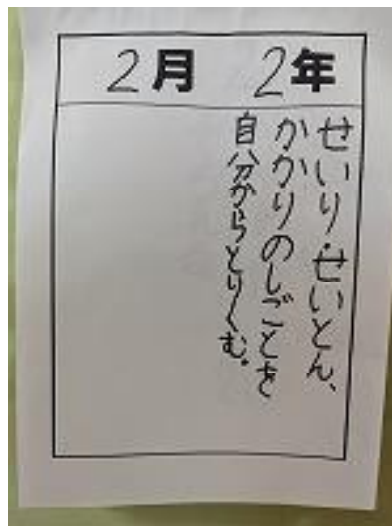 2年 2月
せいり・せいとん、
かかりのしごとを
自分からとりくむ。